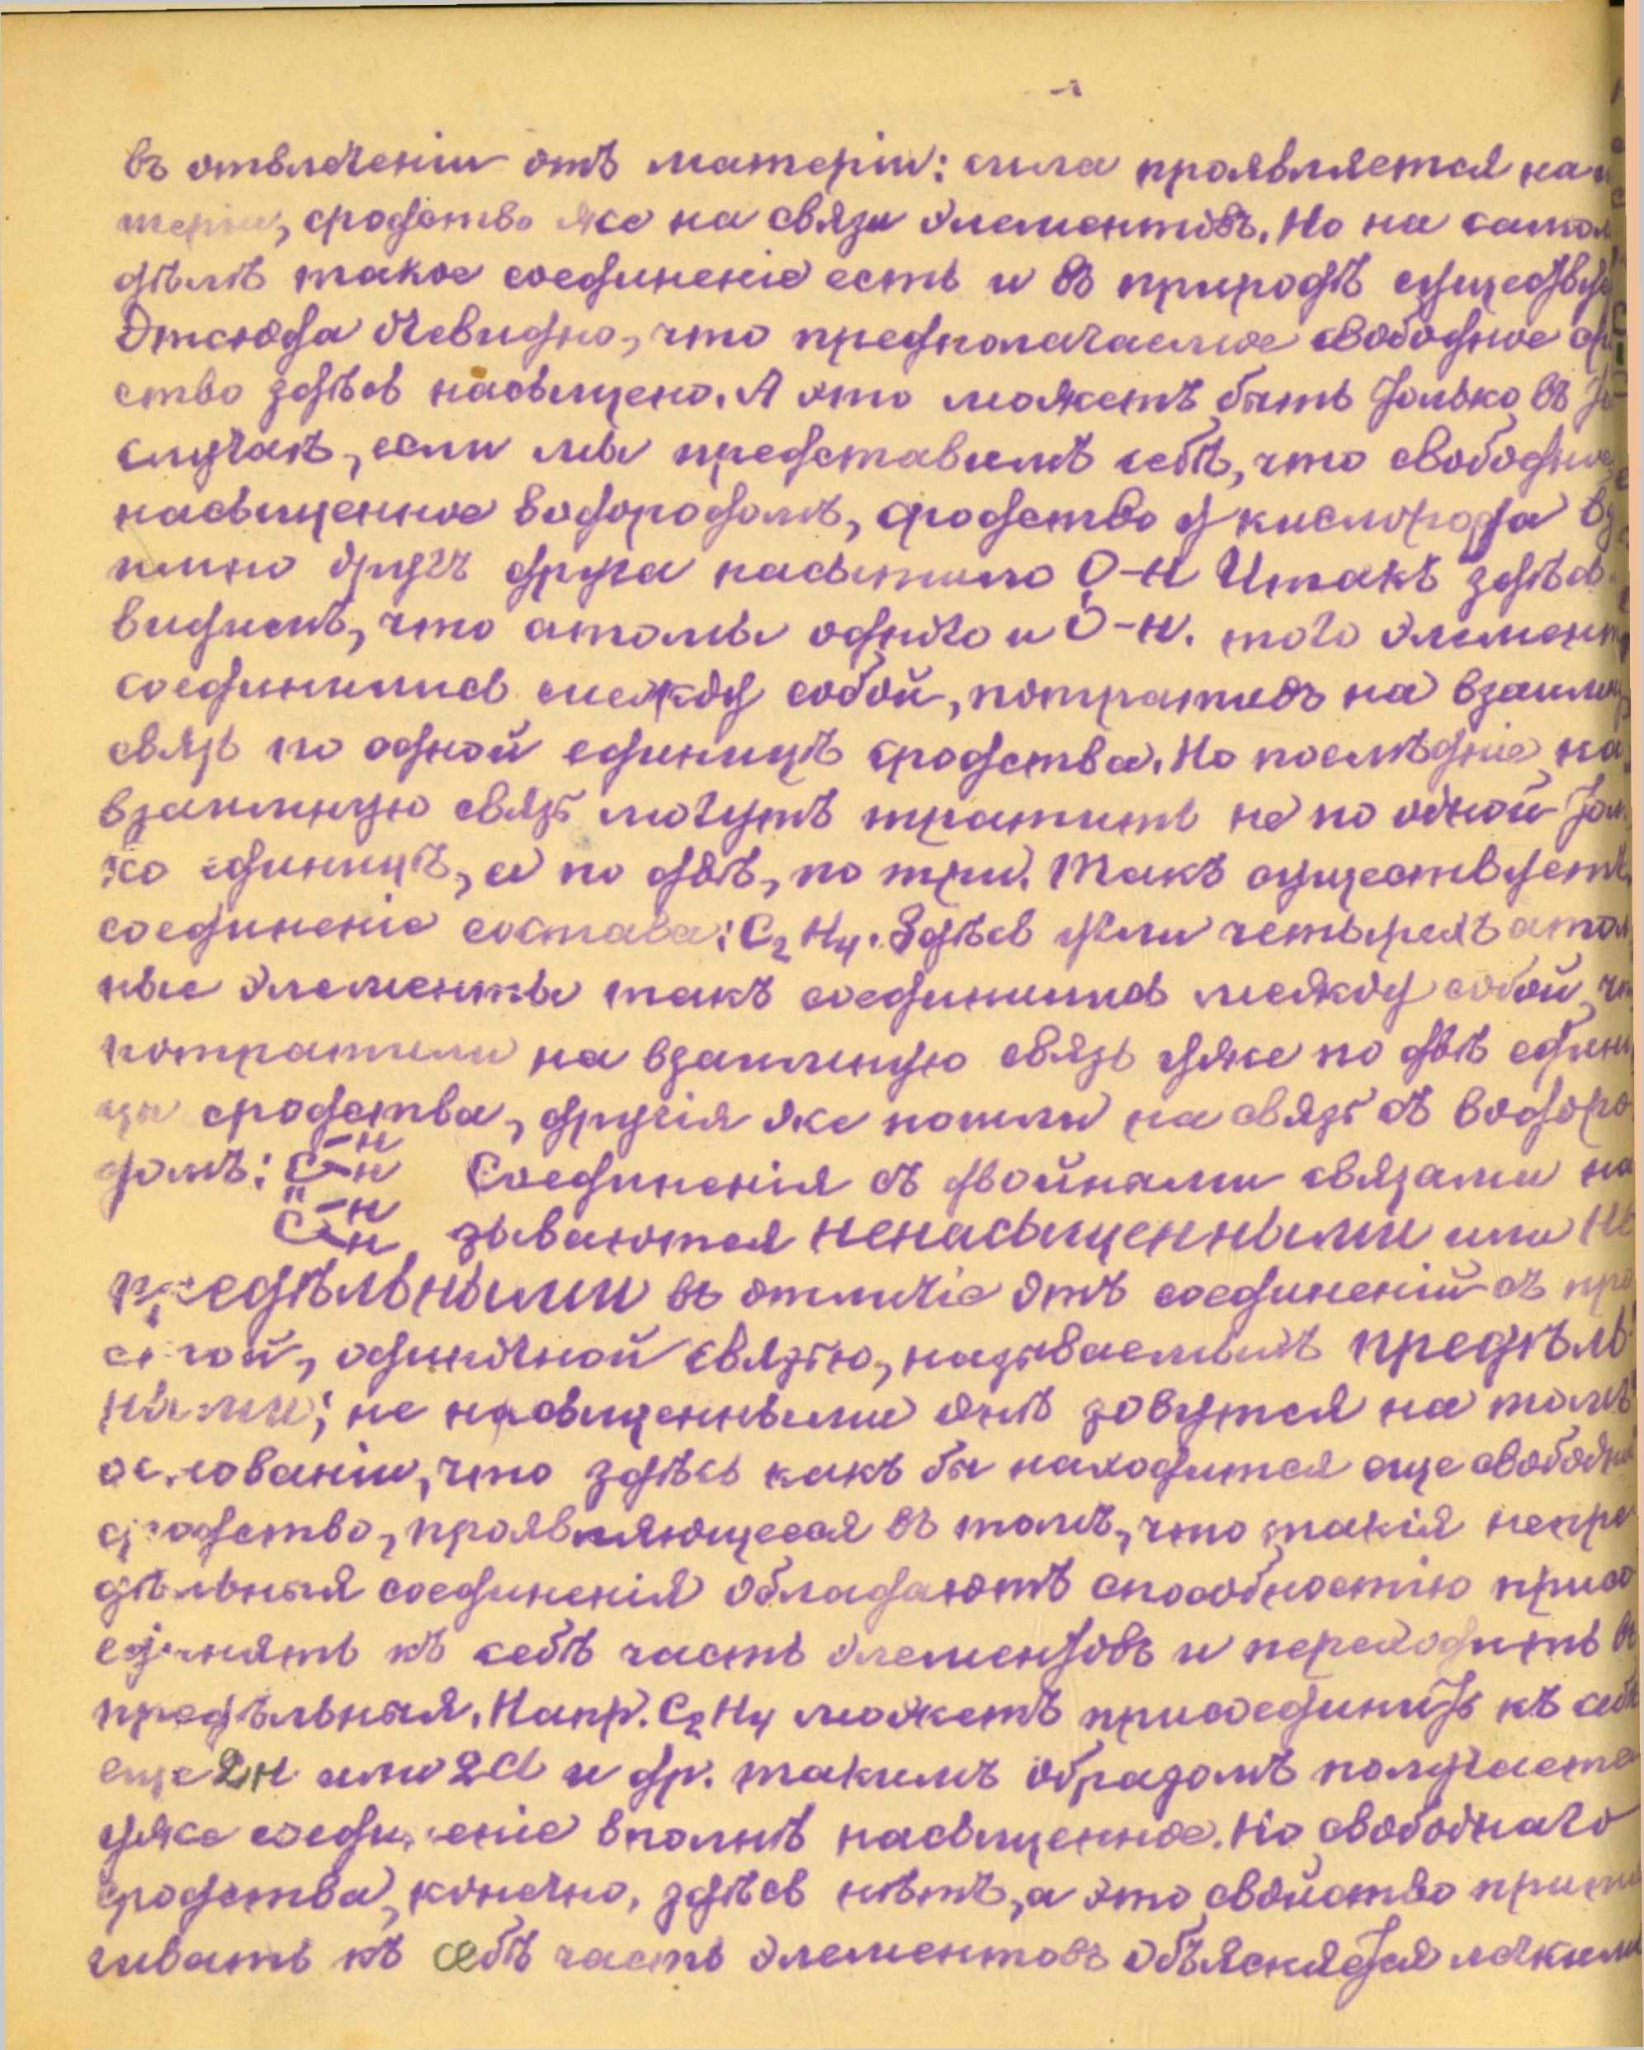 въ отвлеченіи отъ матеріи: сила проявляется на
теріи, сродство же на связи элементовъ. Но на самом
дѣлѣ такое соединеніе есть и въ природѣ существуе
Отсюда очевидно, что предполагаемое свободное ср
ство здѣсь насыщено. А это можетъ быть только въ то
случаѣ, если мы представимъ себѣ, что свободное
насыщенное водородомъ, сродство у кислорода вз
имно другъ друга насытило O-H Итакъ здѣсь
видимъ, что атомы одного и O-H. того элемент
соединились между собой, потративъ на взаимн
связь по одной единицѣ сродства. Но послѣднія на
взаимную связь могутъ тратить не по одной толь
ко единицѣ, а по двѣ, по три. Такъ существуетъ
соединеніе состава: C2H4. Здѣсь четырехъ атом
ные элементы такъ соединились между собой, чт
потратили на взаимную связь уже по двѣ едини
цы сродства, другія же пошли на связь съ водоро
домъ: C-H -H Соединенія съ двойными связами на
" C-H -H зываются ненасыщенными или не
предѣльными въ отличіе отъ соединеній съ про
стой, одиночной связью, называемыхъ предѣль
ными; не насыщенными онѣ зовутся на томъ
основаніи, что здѣсь какъ бы находится еще свободное
сродство, проявляющееся въ томъ, что такія непре
дѣльныя соединенія обладаютъ способностію присо
единять къ себѣ часть элементовъ и переходить въ
предѣльныя. Напр. C2H4 можетъ присоединить къ себѣ
еще 2H или 2Cl и др. такимъ образомъ получается
уже соединеніе вполнѣ насыщенное. Но свободнаго
сродства, конечно, здѣсь нѣтъ, а это свойство притя
гивать къ себѣ часть элементовъ объясняется